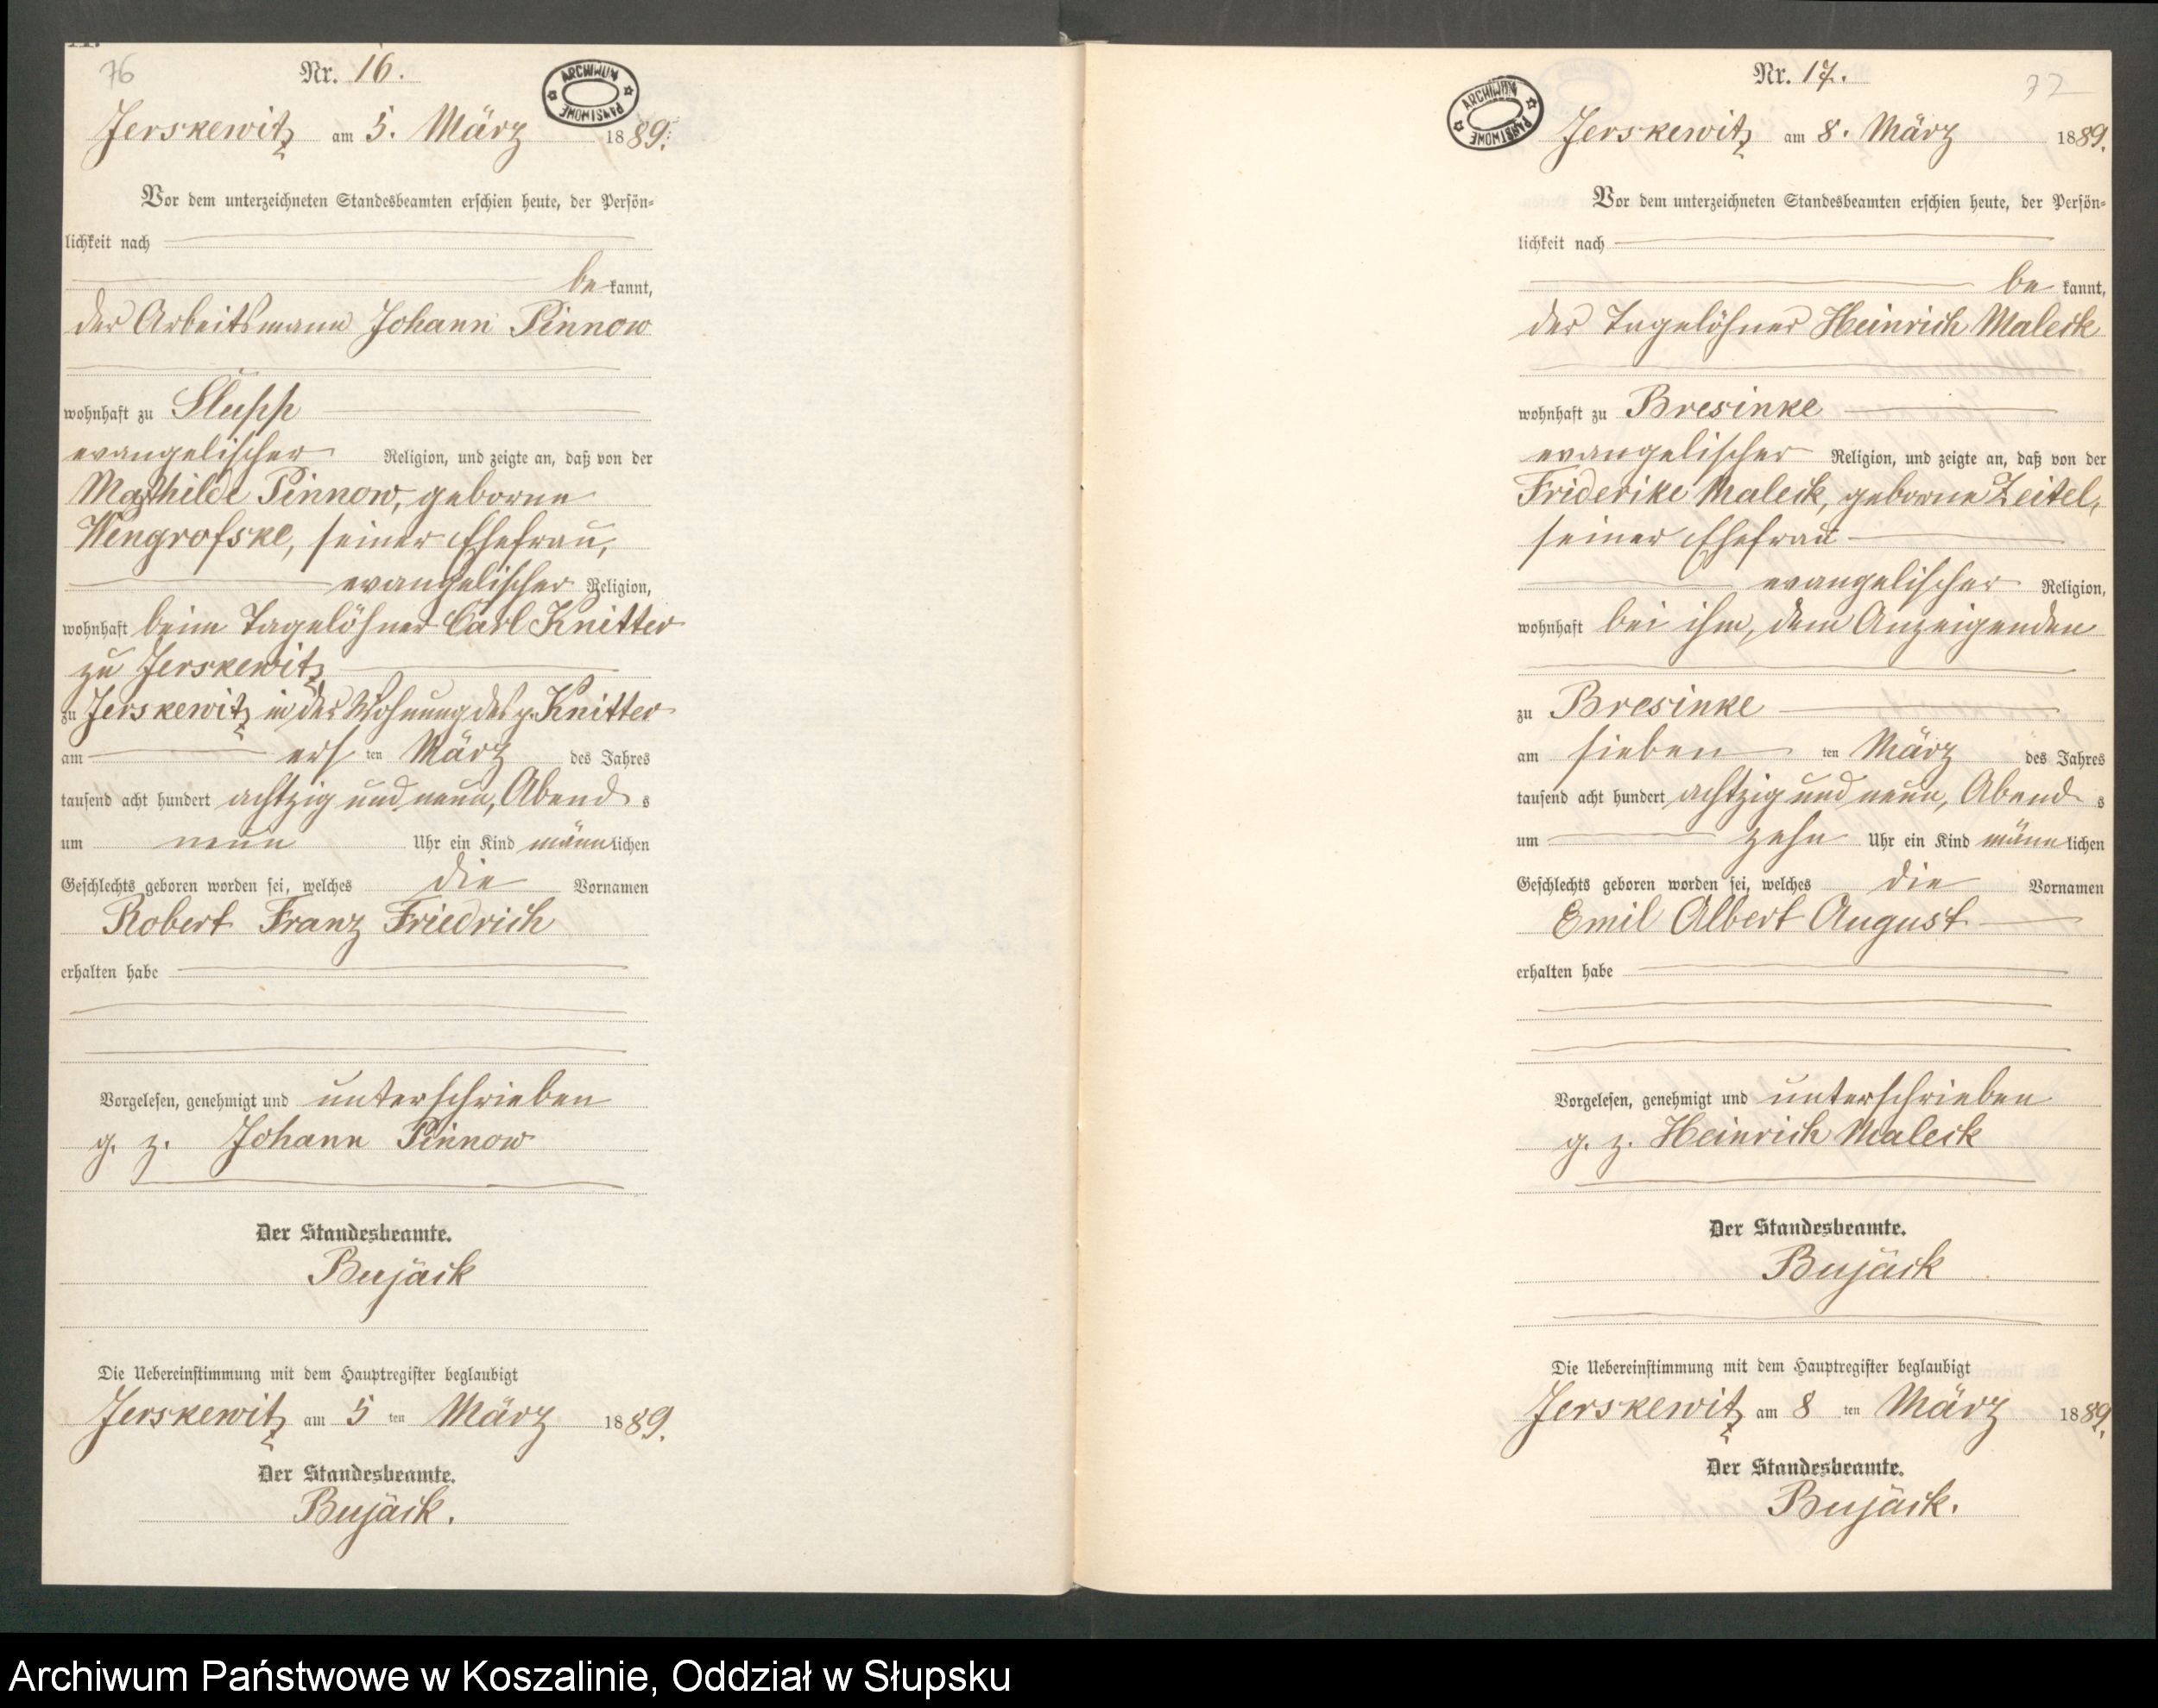 76
Nr. 16.
ARCHIWUM PAŃSTWOWE
Jerskewitz am 5. März 1889.
Vor dem unterzeichneten Standesbeamten erschien heute, der Persön-
lichkeit nach
be kannt,
der Arbeitsmann Johann Pinnow
wohnhaft zu
evangelischer Religion, und zeigte an, daß von der
Mathilde Pinnow, geborne
Wengrofske, seiner Ehefrau,
evangelischer Religion,
wohnhaft beim Tagelöhner Carl Knitter
zu Jerskewitz
zu Jerskewitz in der Wohnung des p. Knitter
am ers ten März des Jahres
tausend acht hundert achtzig und neun, Abend s
um neun Uhr ein Kind männ lichen
Geschlechts geboren worden sei, welches die Vornamen
Robert Franz Friedrich
erhalten habe
Vorgelesen, genehmigt und unterschrieben
g. z. Johann Pinnow
Der Standesbeamte.
Bujäck
Die Uebereinstimmung mit dem Hauptregister beglaubigt
Jerskewitz am 5 ten März 1889.
Der Standesbeamte.
Bujäck.
Nr. 17.
77
ARCHIWUM PAŃSTWOWE
Jerskewitz am 8. März 1889.
Vor dem unterzeichneten Standesbeamten erschien heute, der Persön-
lichkeit nach
be kannt,
der Tagelöhner Heinrich Maleck
wohnhaft zu Bresinke
evangelischer Religion, und zeigte an, daß von der
Friderike Maleck, geborne Zeitel,
seiner Ehefrau
evangelischer Religion,
wohnhaft bei ihm, dem Anzeigenden
zu Bresinke
am sieben ten März des Jahres
tausend acht hundert achtzig und neun, Abend s
um zehn Uhr ein Kind männ lichen
Geschlechts geboren worden sei, welches die Vornamen
Emil Albert August
erhalten habe
Vorgelesen, genehmigt und unterschrieben
g. z. Heinrich Maleck
Der Standesbeamte.
Bujäck
Die Uebereinstimmung mit dem Hauptregister beglaubigt
Jerskewitz am 8 ten März 1889.
Der Standesbeamte.
Bujäck.
Archiwum Państwowe w Koszalinie, Oddział w Słupsku